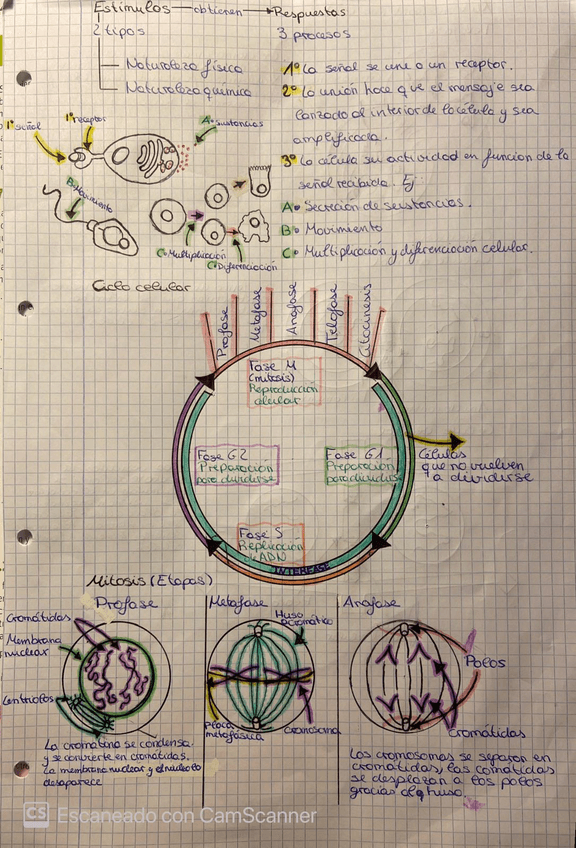 Estímulos obtienen Respuestas
2 tipos
3 procesos
Naturaleza física
Naturaleza química
1º La señal se une a un receptor.
2º La unión hace que el mensaje sea
lanzado al interior de la célula y sea
amplificada.
3º La célula su actividad en función de la
señal recibida. Ej:
A• Secreción de sustancias.
B• Movimiento
C• Multiplicación y diferenciación celular.
1º señal
1º receptor
A• sustancias
B• Movimiento
C• Multiplicación
C• Diferenciación
Ciclo celular
Profase
Metafase
Anafase
Telofase
Citocinesis
Fase M
(mitosis)
Reproducción
celular
Fase G2
Preparación
para dividirse
Fase G1
Preparación
para dividirse
Células
que no vuelven
a dividirse
Fase S
Replicación
de ADN
INTERFASE
Mitosis (Etapas)
Profase
Cromátidas
Membrana
nuclear
Centriolos
La cromatina se condensa
y se convierte en cromátidas.
La membrana nuclear y el nucleolo
desaparece
Metafase
Huso
acromático
Placa
metafásica
Cromosoma
Anafase
Polos
Cromátidas
Los cromosomas se separan en
cromátidas, las cromátidas
se desplazan a los polos
gracias al huso.
CS Escaneado con CamScanner